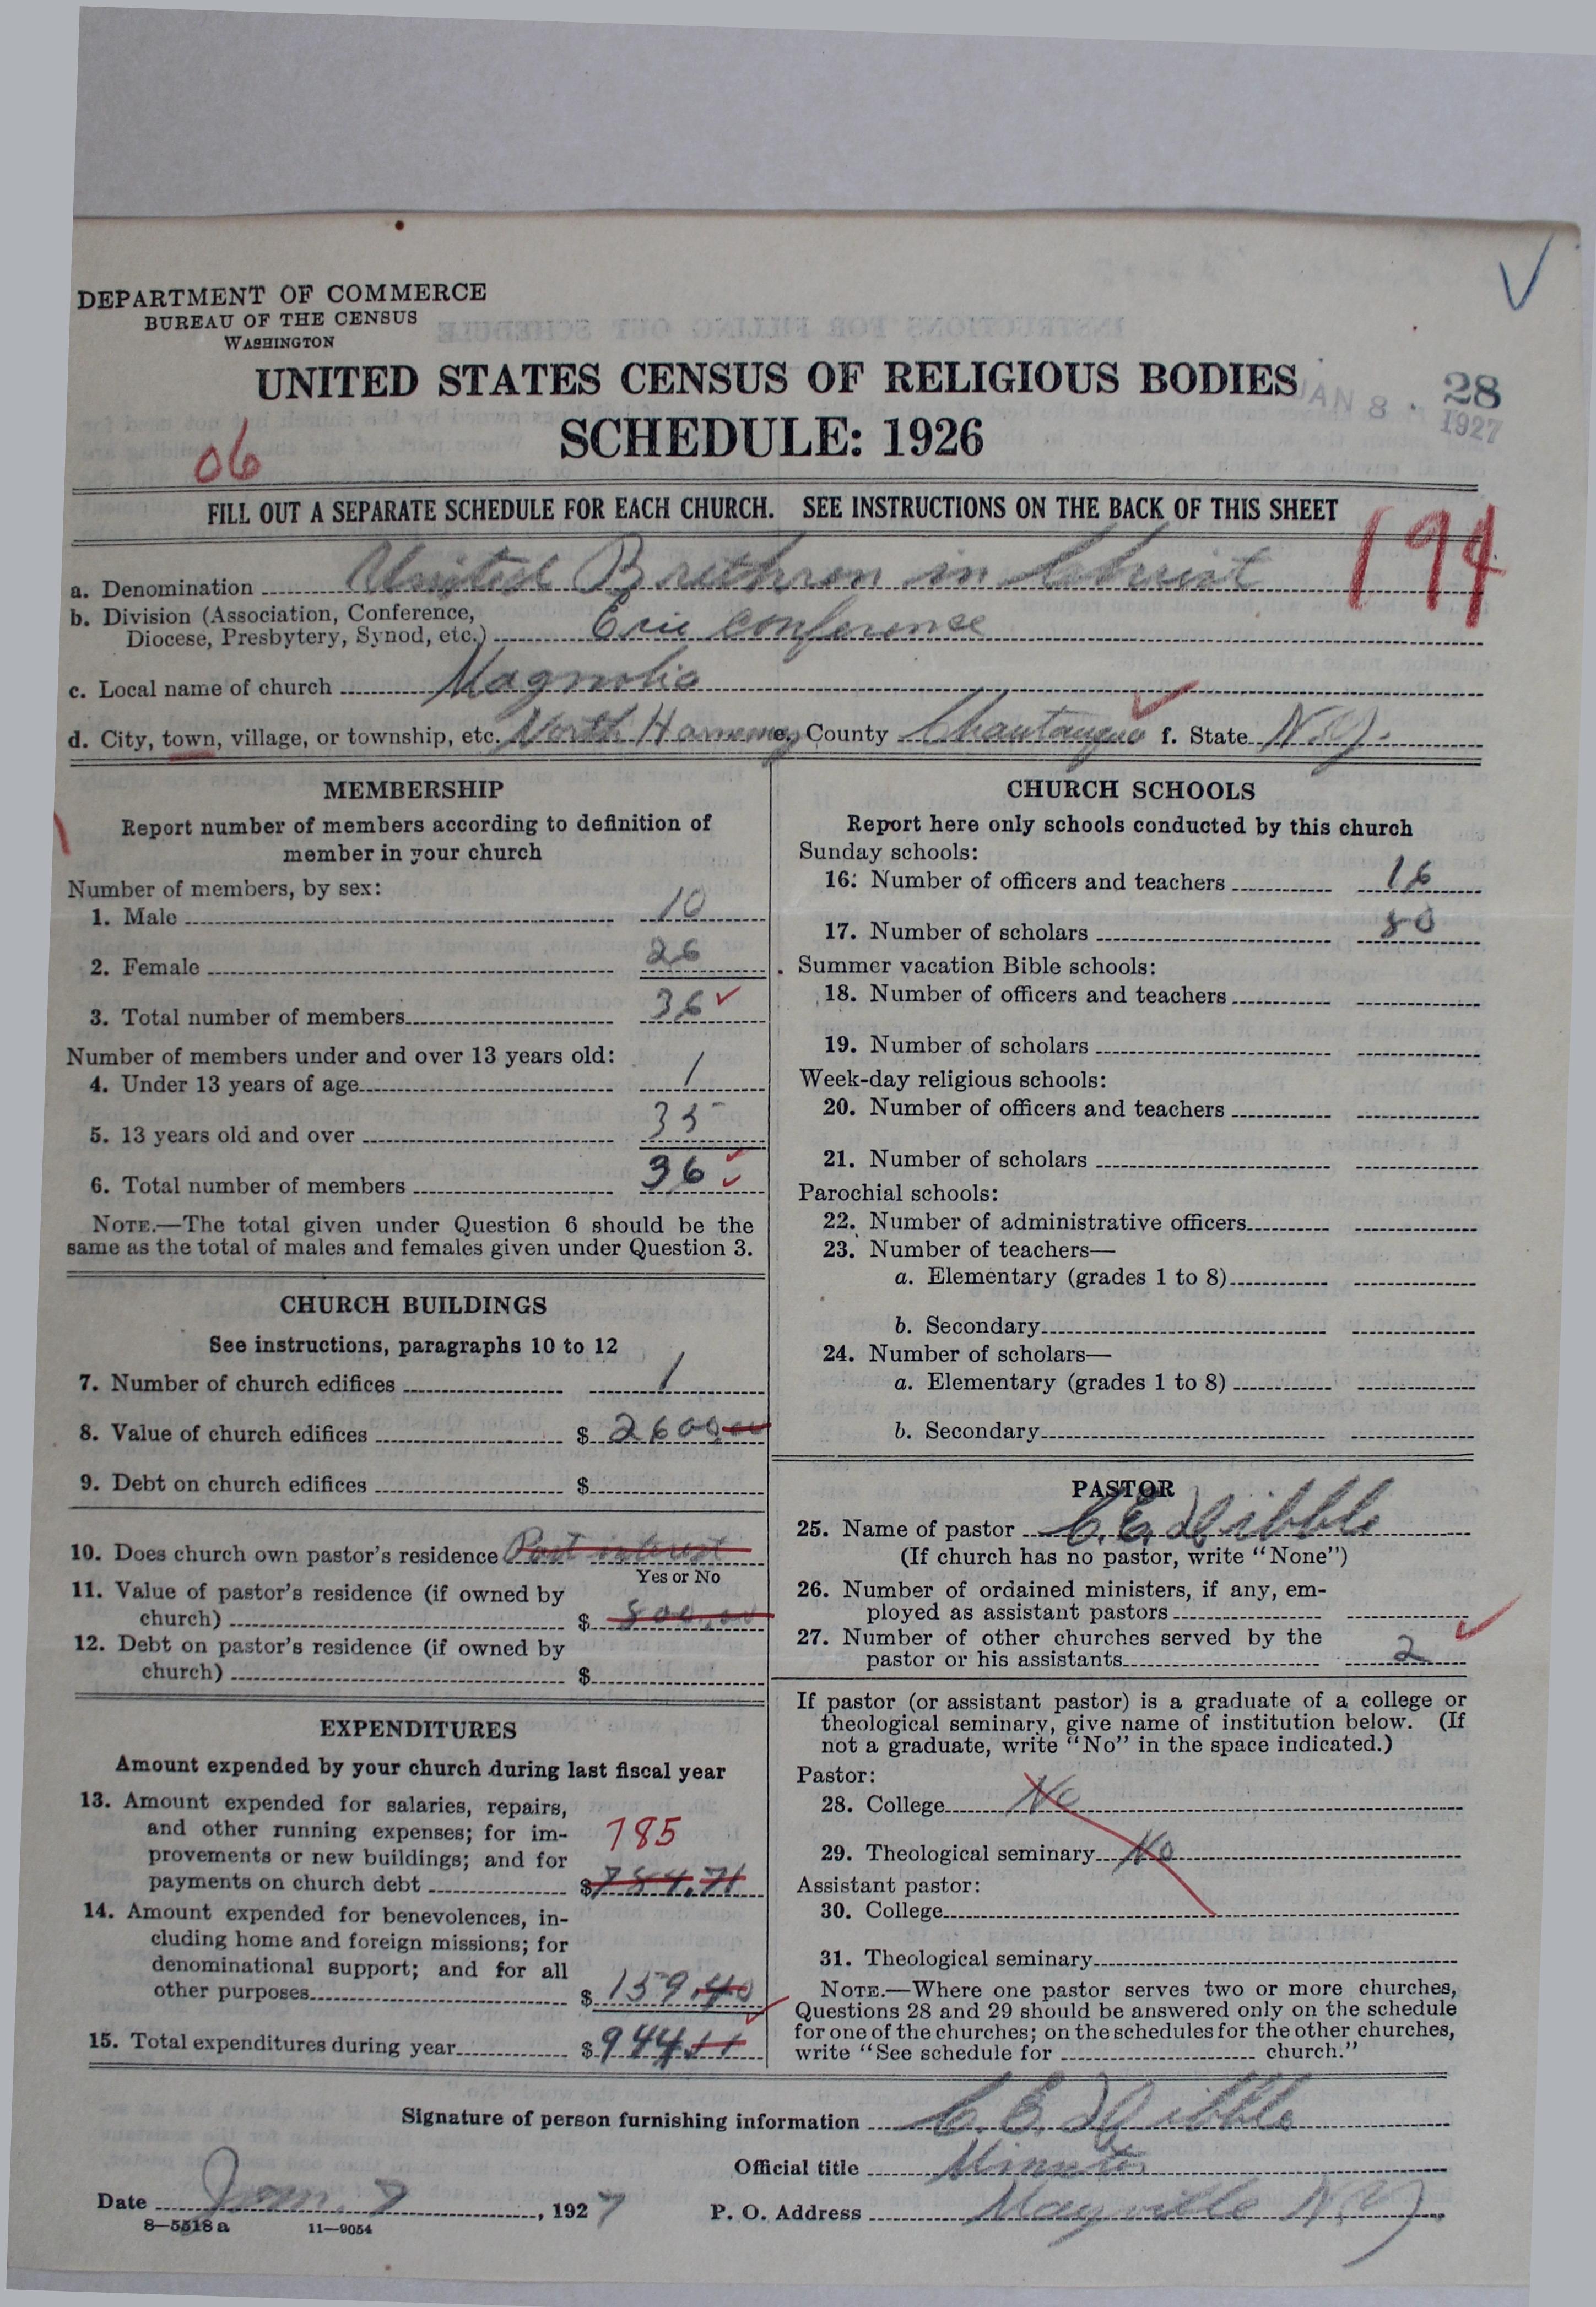 DEPARTMENT OF COMMERCE
BUREAU OF THE CENSUS
WASHINGTON
UNITED STATES CENSUS OF RELIGIOUS BODIES
SCHEDULE: 1926
JAN 8 1927
28
06
FILL OUT A SEPARATE SCHEDULE FOR EACH CHURCH. SEE INSTRUCTIONS ON THE BACK OF THIS SHEET
194
a. Denomination United Brethren in Christ
b. Division (Association, Conference,
Diocese, Presbytery, Synod, etc.) Erie Conference
c. Local name of church Magnolia
d. City, town, village, or township, etc. North Harmony e. County Chautauqua f. State N.Y.
MEMBERSHIP
Report number of members according to definition of
member in your church
Number of members, by sex:
1. Male 10
2. Female 26
3. Total number of members 36
Number of members under and over 13 years old:
4. Under 13 years of age 1
5. 13 years old and over 35
6. Total number of members 36
NOTE.—The total given under Question 6 should be the
same as the total of males and females given under Question 3.
CHURCH BUILDINGS
See instructions, paragraphs 10 to 12
7. Number of church edifices 1
8. Value of church edifices $ 2600.00
9. Debt on church edifices $
10. Does church own pastor's residence Part interest
Yes or No
11. Value of pastor's residence (if owned by
church) $ 800.00
12. Debt on pastor's residence (if owned by
church) $
EXPENDITURES
Amount expended by your church during last fiscal year
13. Amount expended for salaries, repairs,
and other running expenses; for im-
provements or new buildings; and for
payments on church debt $ 784.71
785
14. Amount expended for benevolences, in-
cluding home and foreign missions; for
denominational support; and for all
other purposes $ 159.40
15. Total expenditures during year $ 944.11
CHURCH SCHOOLS
Report here only schools conducted by this church
Sunday schools:
16. Number of officers and teachers 16
17. Number of scholars 80
Summer vacation Bible schools:
18. Number of officers and teachers
19. Number of scholars
Week-day religious schools:
20. Number of officers and teachers
21. Number of scholars
Parochial schools:
22. Number of administrative officers
23. Number of teachers—
a. Elementary (grades 1 to 8)
b. Secondary
24. Number of scholars—
a. Elementary (grades 1 to 8)
b. Secondary
PASTOR
25. Name of pastor C. E. Dibble
(If church has no pastor, write "None")
26. Number of ordained ministers, if any, em-
ployed as assistant pastors
27. Number of other churches served by the
pastor or his assistants 2
If pastor (or assistant pastor) is a graduate of a college or
theological seminary, give name of institution below. (If
not a graduate, write "No" in the space indicated.)
Pastor:
28. College No
29. Theological seminary No
Assistant pastor:
30. College
31. Theological seminary
NOTE.—Where one pastor serves two or more churches,
Questions 28 and 29 should be answered only on the schedule
for one of the churches; on the schedules for the other churches,
write "See schedule for church."
Signature of person furnishing information C. E. Dibble
Official title Minister
Date Jan. 7, 1927 P. O. Address Mayville N.Y.
8—5518 a 11—9054